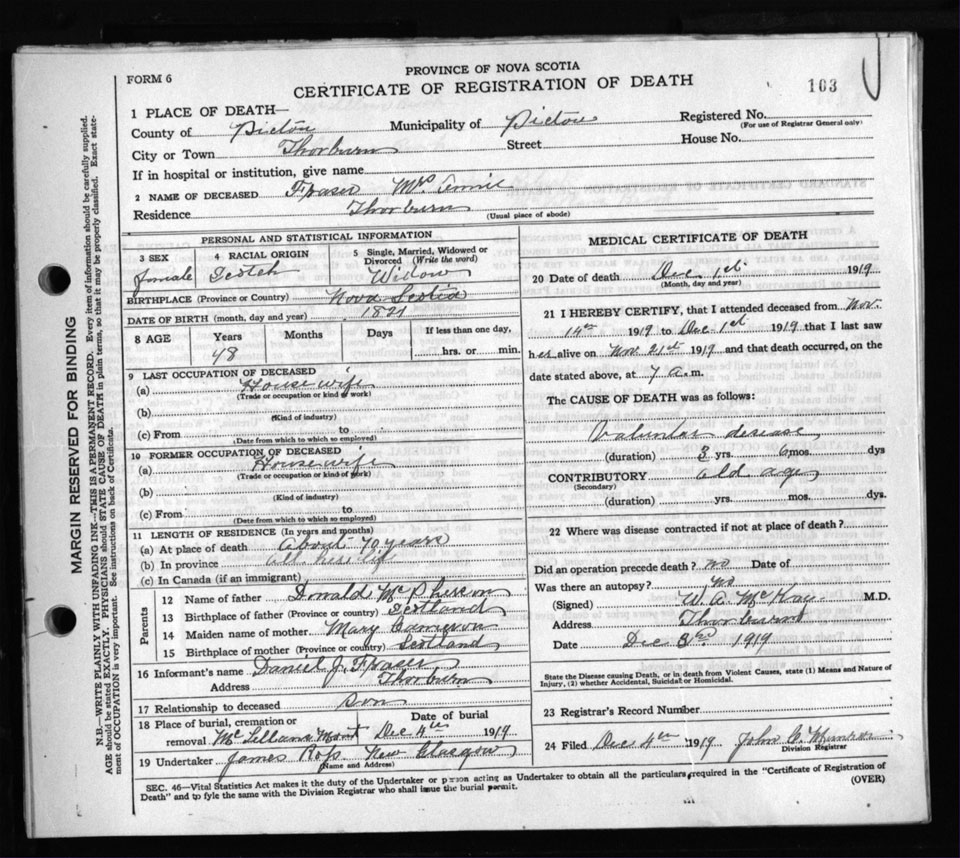 PROVINCE OF NOVA SCOTIA
FORM 6
CERTIFICATE OF REGISTRATION OF DEATH
103
1 PLACE OF DEATH—
County of Pictou Municipality of Pictou Registered No.
(For use of Registrar General only)
City or Town Thorburn Street House No.
If in hospital or institution, give name
2 NAME OF DECEASED Fraser Mrs Annie
Residence Thorburn
(Usual place of abode)
PERSONAL AND STATISTICAL INFORMATION
3 SEX female
4 RACIAL ORIGIN Scotch
5 Single, Married, Widowed or Divorced (Write the word) Widow
BIRTHPLACE (Province or Country) Nova Scotia
DATE OF BIRTH (month, day and year) 1821
8 AGE Years Months Days If less than one day,
98 hrs. or min.
9 LAST OCCUPATION OF DECEASED
(a) House wife
(Trade or occupation or kind of work)
(b)
(Kind of industry)
(c) From to
(Date from which to which so employed)
10 FORMER OCCUPATION OF DECEASED
(a) House wife
(Trade or occupation or kind of work)
(b)
(Kind of industry)
(c) From to
(Date from which to which so employed)
11 LENGTH OF RESIDENCE (In years and months)
(a) At place of death About 70 years
(b) In province all her life
(c) In Canada (if an immigrant)
Parents
12 Name of father Donald McPherson
13 Birthplace of father (Province or country) Scotland
14 Maiden name of mother Mary Cameron
15 Birthplace of mother (Province or country) Scotland
16 Informant's name Daniel J. Fraser
Address Thorburn
17 Relationship to deceased Son
18 Place of burial, cremation or removal McLellans Mount Date of burial Dec 4th 1919
19 Undertaker James Ross New Glasgow
(Name and Address)
MEDICAL CERTIFICATE OF DEATH
20 Date of death Dec 1st 1919
(Month, day and year)
21 I HEREBY CERTIFY, that I attended deceased from Nov.
14th 1919 to Dec 1st 1919 that I last saw
her alive on Nov 21st 1919 and that death occurred, on the
date stated above, at 7 a.m.
The CAUSE OF DEATH was as follows:
Valvular disease
(duration) 3 yrs. 6 mos. dys
CONTRIBUTORY old age
(Secondary)
(duration) yrs. mos. dys.
22 Where was disease contracted if not at place of death?
Did an operation precede death? no Date of
Was there an autopsy? no
(Signed) W. A. McKay M.D.
Address Thorburn
Date Dec 3rd 1919
State the Disease causing Death, or in death from Violent Causes, state (1) Means and Nature of
Injury, (2) whether Accidental, Suicidal or Homicidal.
23 Registrar's Record Number
24 Filed Dec 4th 1919 John C.
Division Registrar
SEC. 46—Vital Statistics Act makes it the duty of the Undertaker or person acting as Undertaker to obtain all the particulars required in the "Certificate of Registration of
Death" and to fyle the same with the Division Registrar who shall issue the burial permit.
(OVER)
MARGIN RESERVED FOR BINDING
N.B.—WRITE PLAINLY WITH UNFADING INK—THIS IS A PERMANENT RECORD. Every item of information should be carefully supplied.
AGE should be stated EXACTLY. PHYSICIANS should STATE CAUSE OF DEATH in plain terms, so that it may be properly classified. Exact state-
ment of OCCUPATION is very important. See instructions on back of Certificate.